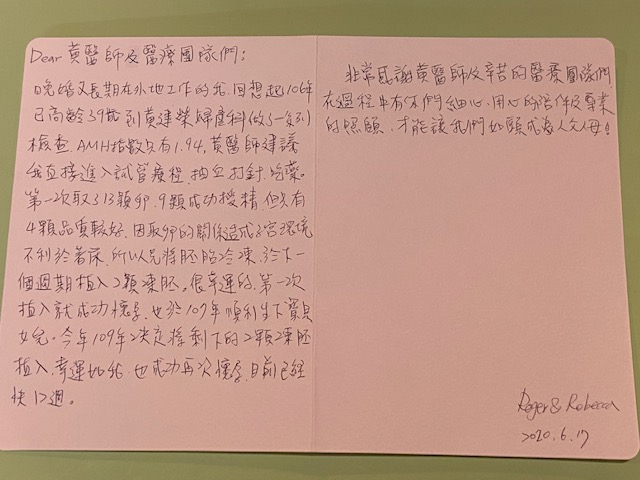 Dear 黃醫師及醫療團隊們:
晚婚又長期在外地工作的我,回想起106年
已高齡39歲到黃建榮婦產科做了一系列
檢查,AMH指數只有1.94,黃醫師建議
我直接進入試管療程,抽血打針吃藥。
第一次取了13顆卵,9顆成功授精,但只有
4顆品質較好,因取卵的關係造成子宮環境
不利於著床,所以先將胚胎冷凍,於下一
個週期植入2顆凍胚。很幸運的,第一次
植入就成功懷孕,也於107年順利生下寶貝
女兒。今年109年決定將剩下的2顆凍胚
植入,幸運如我,也成功再次懷孕,目前已經
快12週。
非常感謝黃醫師及辛苦的醫療團隊們
在過程中有你們細心、用心的陪伴及專業
的照顧,才能讓我們如願成為人父母!
Roger & Rebecca
2020.6.17